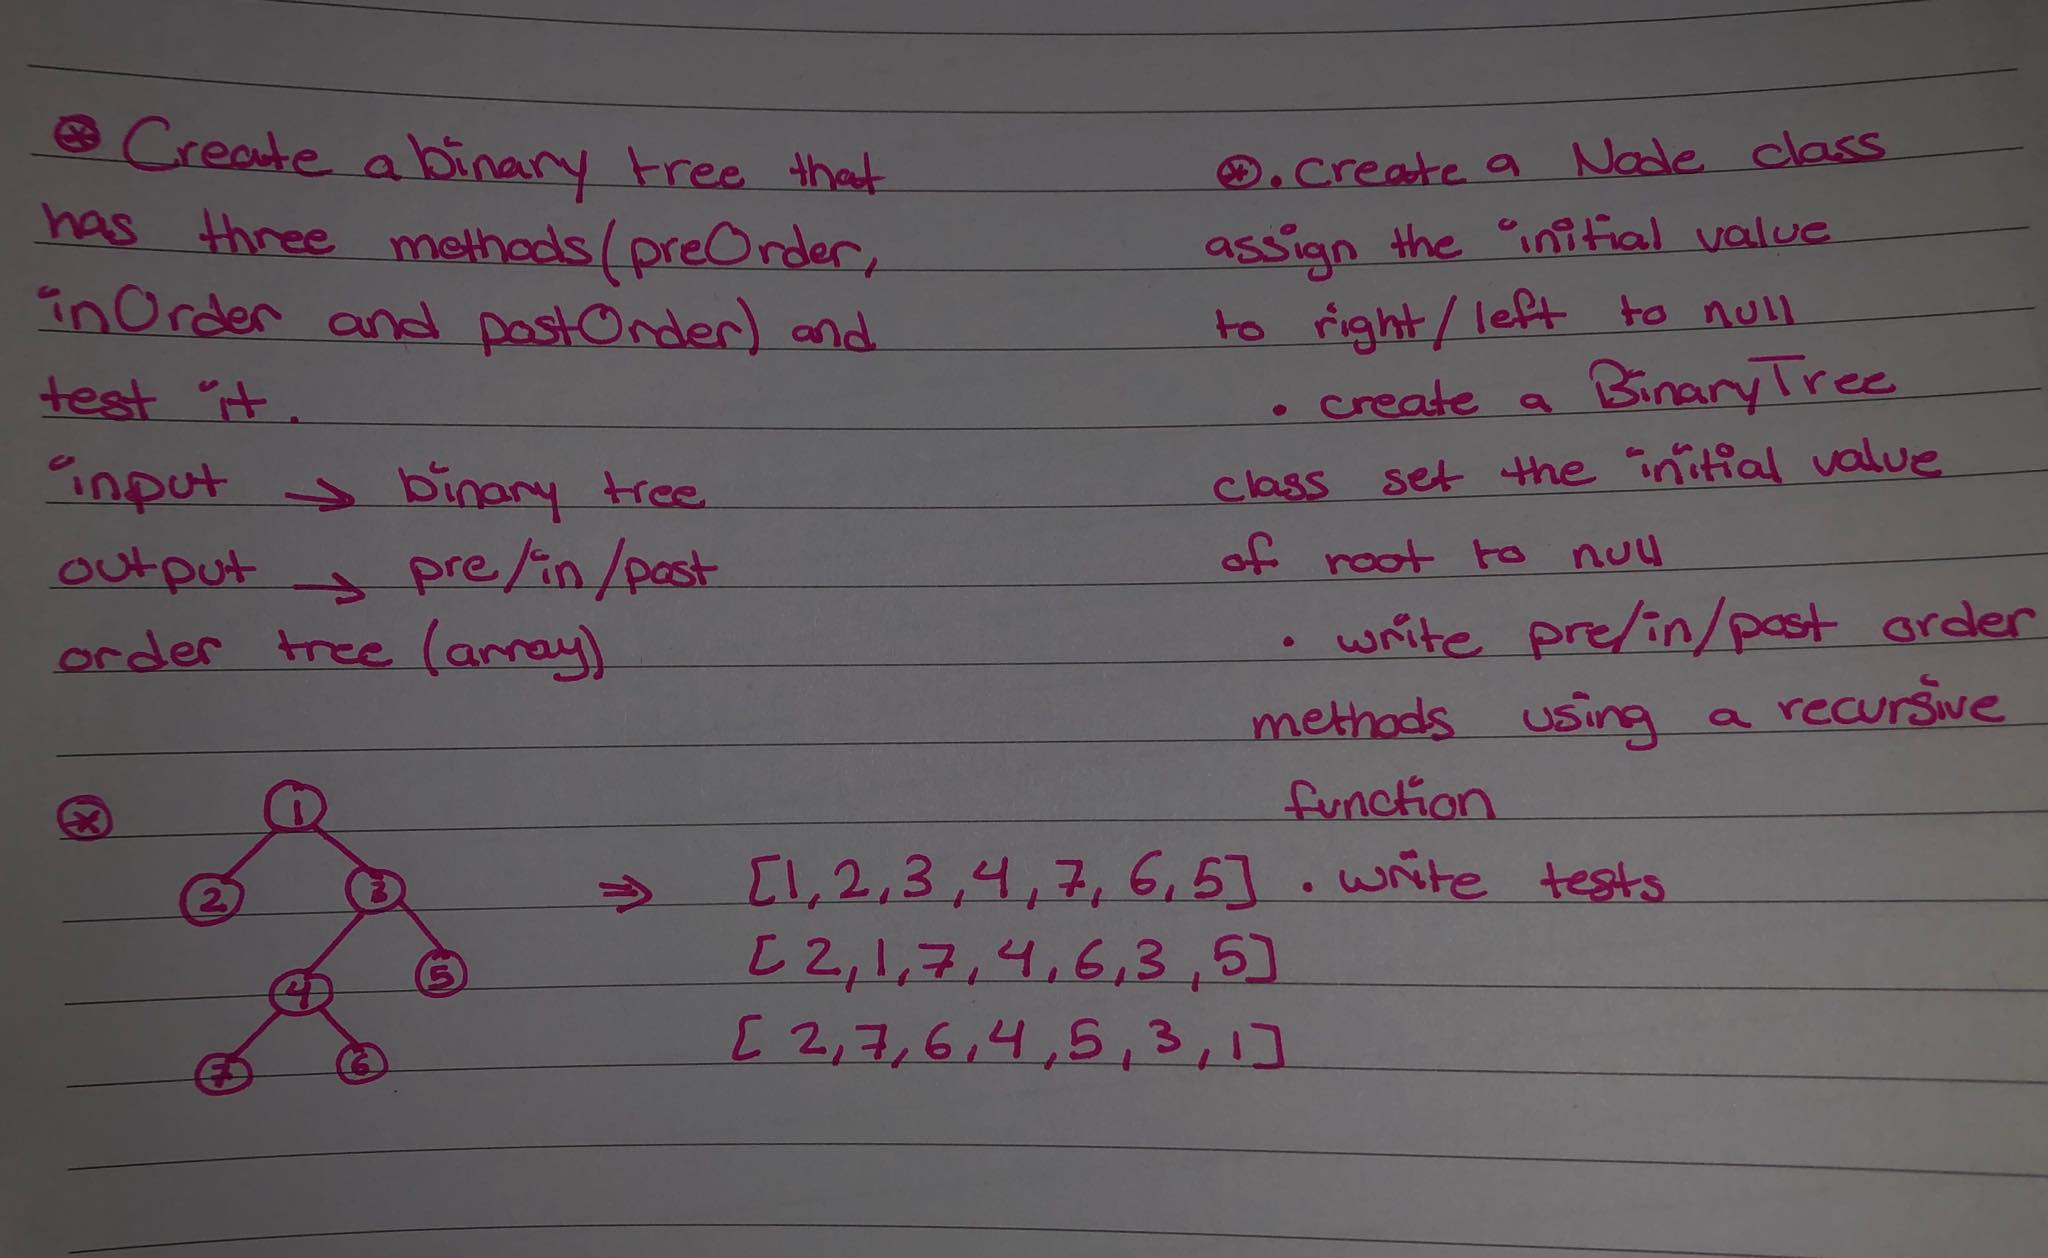 ⊛ Create a binary tree that
has three methods (preOrder,
inOrder and postOrder) and
test it.
input → binary tree
output → pre/in/post
order tree (array)
⊛ . create a Node class
assign the initial value
to right/left to null
. create a BinaryTree
class set the initial value
of root to null
. write pre/in/post order
methods using a recursive
function
. write tests
⊛
1
2 3
4 5
7 6
⇒ [1, 2, 3, 4, 7, 6, 5]
[2, 1, 7, 4, 6, 3, 5]
[2, 7, 6, 4, 5, 3, 1]